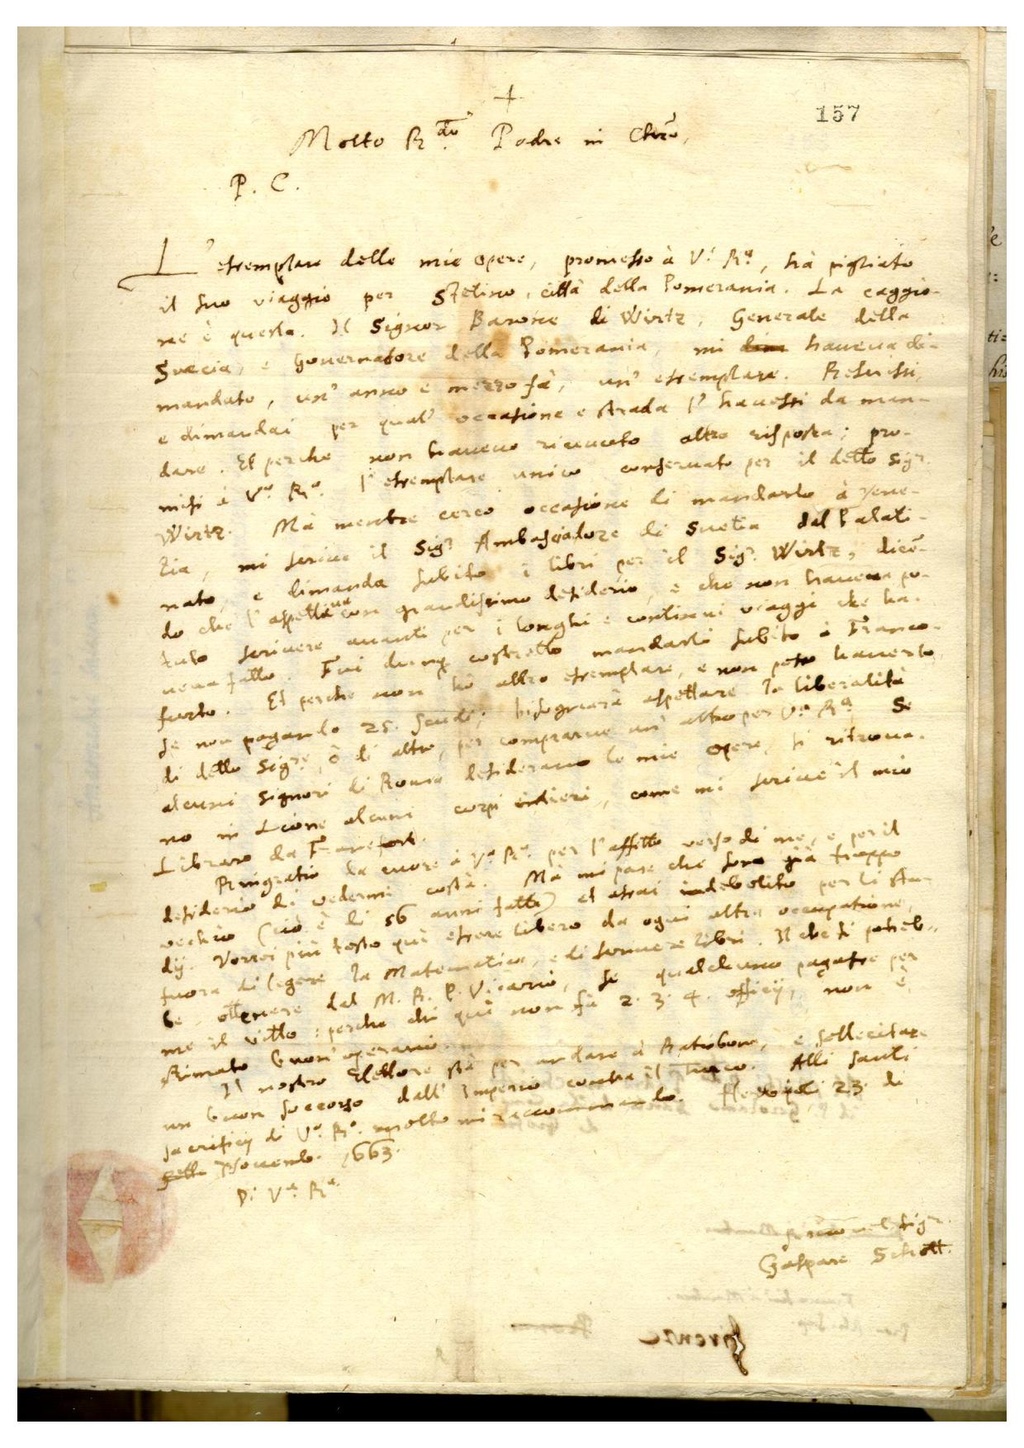 157
Molto R.do Padre in Chro,
P. C.
L'essemplare delle mie opere, promesso à V.a R.a, hà pigliato
il suo viaggio per Stetino, città della Pomerania. La caggio-
ne è questa. Il Signor Barone di Wirtz, Generale della
Suecia, e Governatore della Pomerania, mi haveva di-
mandato, un' anno e mezzo fà, un' essemplare. Rescrissi,
e dimandai per qual' occasione e strada l'havessi da man-
dare. Et perche non havevo ricevuto altra risposta; pro-
misi à V.a R.a l'essemplare unico conservato per il detto Sig.r
Wirtz. Mà mentre cerco occasione di mandarlo à Vene-
tia, mi scrive il Sig.r Ambasciadore di Suetia dal Palati-
nato, e dimanda subito i libri per il Sig.r Wirtz, dicen-
do che l'aspettava con grandissimo desiderio, e che non haveva po-
tuto scrivere avanti per i longhi e continui viaggi che ha-
veva fatto. Fui dunq costretto mandarli subito à Franco-
furto. Et perche non hò altro essemplare, e non posso haverlo
se non pagando 25. scudi; bisognarà aspettare la liberalità
di detto Sig.re, ò di altro, per comprarne un' altro per V.a R.a Se
alcuni Signori di Roma desiderano le mie opere, si ritrova-
no in Lione alcuni corpi intieri, come mi scrive il mio
Libraro da Francfort.
Ringratio da cuore à V.a R.a per l'affetto verso di me, e per il
desiderio di vedermi costà. Mà mi pare che sono già troppo
vechio (ciò è di 56 anni fatti) et assai indebolito per li stu-
dij. Vorrei più tosto quì essere libero da ogni altra occupatione,
fuora di legere la Matematica, e di scrivere libri. Il che si potreb-
be ottenere dal M. R. P. Vicario, se qualcheuno pagasse per
me il vitto: perche chi quì non fà 2. 3. 4. officij, non è
stimato buon' operario.
Il nostro Elettore stà per andare à Ratisbona, e sollecitare
un buon soccorso dall' Imperio contra il Turco. Alli santi
sacrificij di V.a R.a molto mi raccommando. Herbipoli 23. di
Novemb. 1663.
Di V.a R.a
servo nel Sig.r
Gaspare Schott.
Firenze